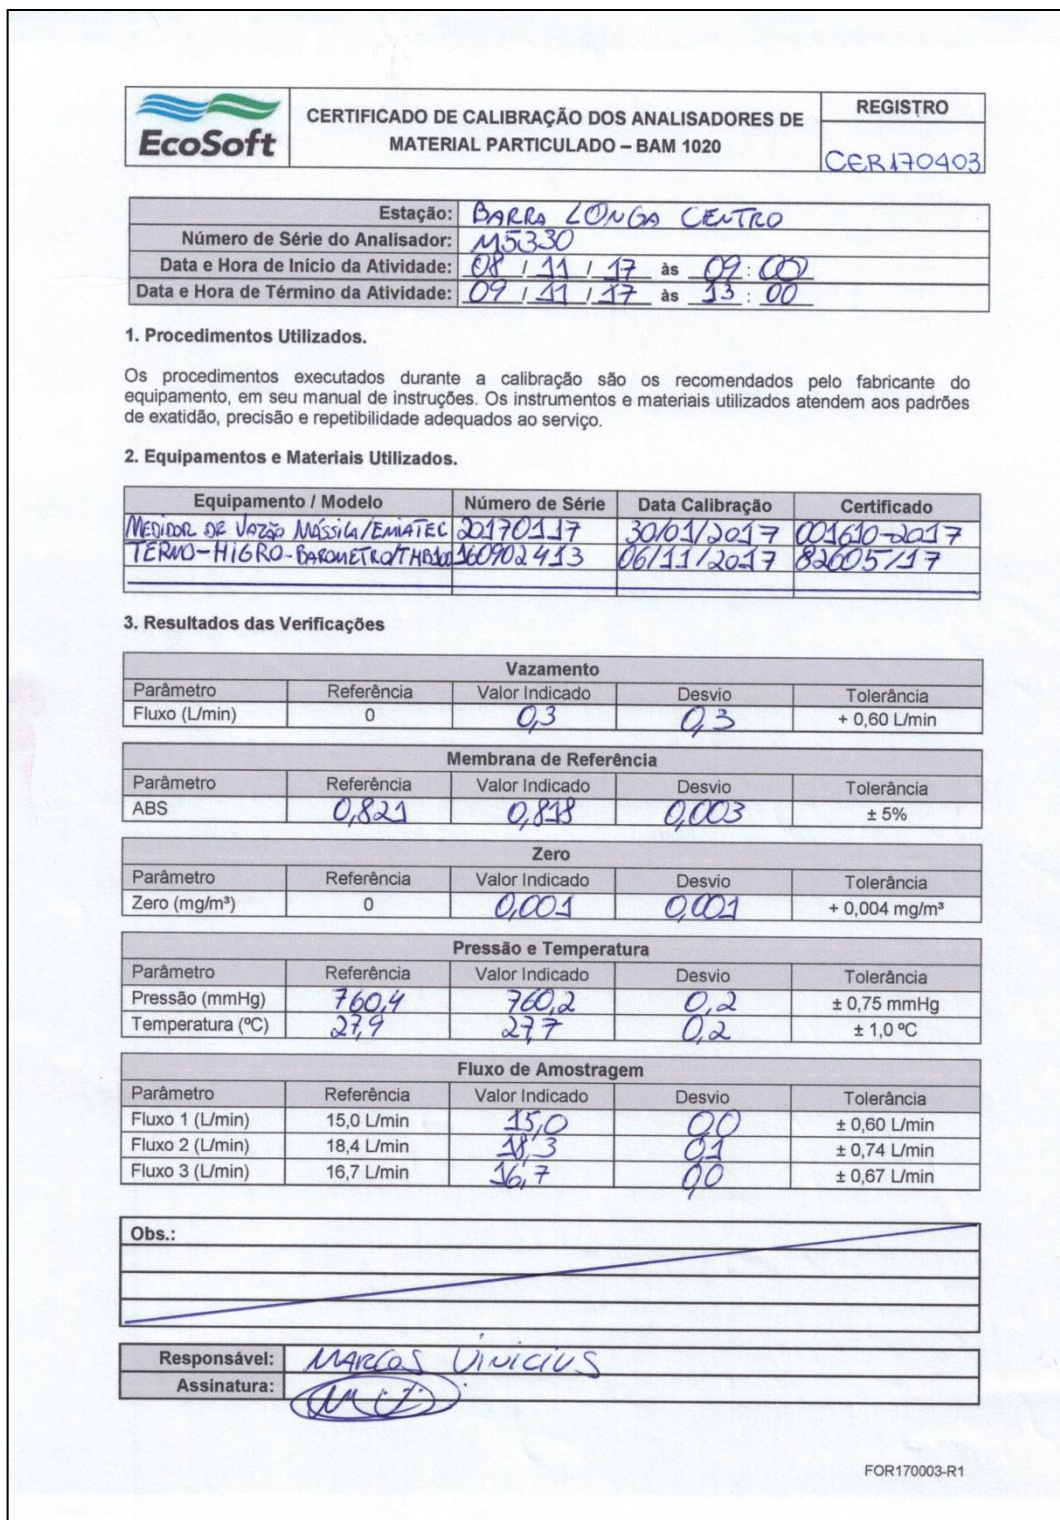 EcoSoft
CERTIFICADO DE CALIBRAÇÃO DOS ANALISADORES DE
MATERIAL PARTICULADO – BAM 1020
REGISTRO
CER170403
Estação: BARRA LONGA CENTRO
Número de Série do Analisador: M5330
Data e Hora de Início da Atividade: 08 / 11 / 17 às 09:00
Data e Hora de Término da Atividade: 09 / 11 / 17 às 13:00
1. Procedimentos Utilizados.
Os procedimentos executados durante a calibração são os recomendados pelo fabricante do
equipamento, em seu manual de instruções. Os instrumentos e materiais utilizados atendem aos padrões
de exatidão, precisão e repetibilidade adequados ao serviço.
2. Equipamentos e Materiais Utilizados.
Equipamento / Modelo Número de Série Data Calibração Certificado
MEDIDOR DE VAZÃO MÁSSICA/EMIATEC 20170117 30/01/2017 001610-2017
TERMO-HIGRO-BAROMETRO/THB100 160902413 06/11/2017 82605/17
3. Resultados das Verificações
Vazamento
Parâmetro Referência Valor Indicado Desvio Tolerância
Fluxo (L/min) 0 0,3 0,3 + 0,60 L/min
Membrana de Referência
Parâmetro Referência Valor Indicado Desvio Tolerância
ABS 0,821 0,818 0,003 ± 5%
Zero
Parâmetro Referência Valor Indicado Desvio Tolerância
Zero (mg/m³) 0 0,001 0,001 + 0,004 mg/m³
Pressão e Temperatura
Parâmetro Referência Valor Indicado Desvio Tolerância
Pressão (mmHg) 760,4 760,2 0,2 ± 0,75 mmHg
Temperatura (ºC) 27,9 27,7 0,2 ± 1,0 ºC
Fluxo de Amostragem
Parâmetro Referência Valor Indicado Desvio Tolerância
Fluxo 1 (L/min) 15,0 L/min 15,0 0,0 ± 0,60 L/min
Fluxo 2 (L/min) 18,4 L/min 18,3 0,1 ± 0,74 L/min
Fluxo 3 (L/min) 16,7 L/min 16,7 0,0 ± 0,67 L/min
Obs.:
Responsável: MARCOS VINICIUS
Assinatura:
FOR170003-R1